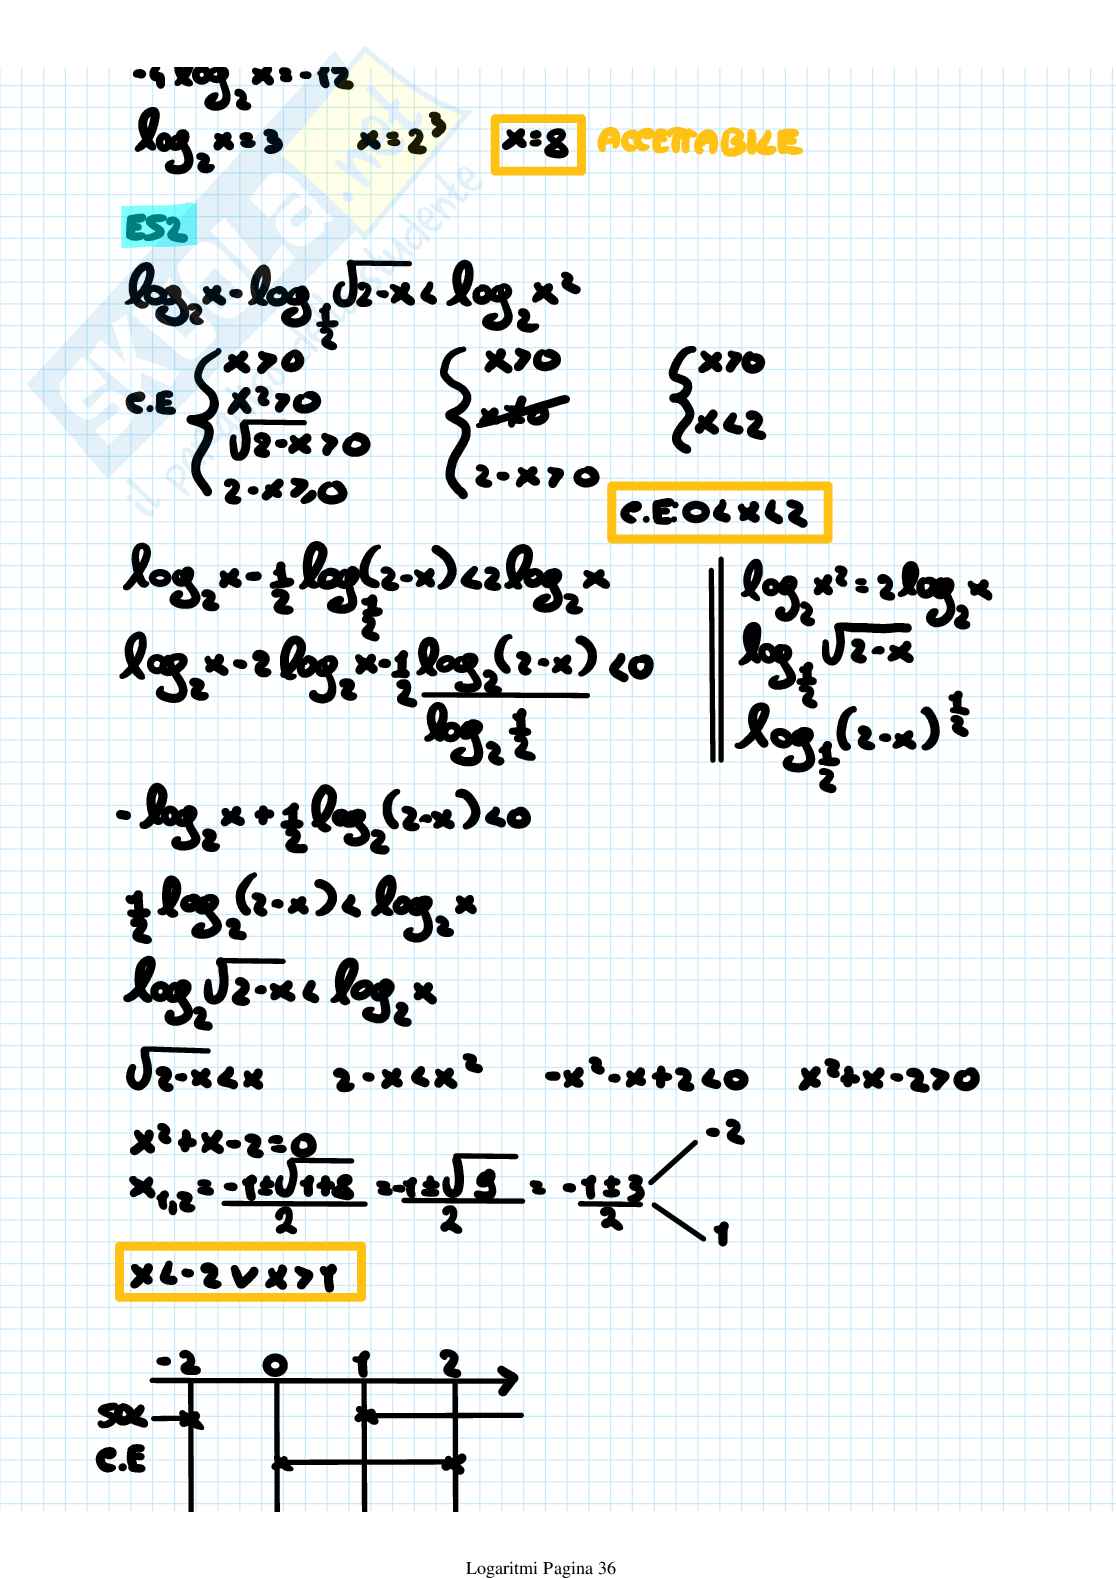 -4 log₂ x = -12
log₂ x = 3    x = 2³    x = 8 ACCETTABILE
ES2
log₂ x - log_{1/2} √(2-x) < log₂ x²
C.E { x > 0    { x > 0    { x > 0
x² > 0    x ≠ 0    x < 2
√(2-x) > 0
2-x ⩾ 0    2-x > 0
C.E: 0 < x < 2
log₂ x - 1/2 log_{1/2} (2-x) < 2 log₂ x
log₂ x - 2 log₂ x - 1/2 log₂ (2-x) / log₂ 1/2 < 0
log₂ x² = 2 log₂ x
log_{1/2} √(2-x)
log_{1/2} (2-x)^{1/2}
- log₂ x + 1/2 log₂ (2-x) < 0
1/2 log₂ (2-x) < log₂ x
log₂ √(2-x) < log₂ x
√(2-x) < x    2-x < x²    -x²-x+2 < 0    x²+x-2 > 0
x²+x-2=0
x₁,₂ = (-1±√(1+8))/2 = (-1±√9)/2 = (-1±3)/2    -2    1
x < -2 ∨ x > 1
-2 0 1 2
SOL
C.E
SKUOLA.net
il portale dello studente
Logaritmi Pagina 36